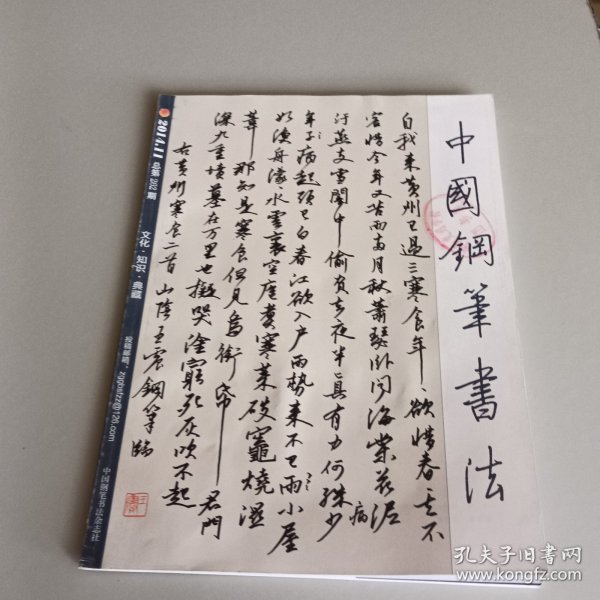 中國鋼筆書法
自我来黄州已過三寒食年、欲惜春、去不
容惜今年又苦雨兩月秋蕭瑟卧聞海棠花泥
汙燕支雪闇中偷負去夜半真有力何殊少
病
年子病起頭已白春江欲入户雨勢来不已雨小屋
如漁舟濛、水雲裏空庖煮寒菜破竈燒濕
葦那知是寒食但見烏銜帋君門
深九重墳墓在万里也擬哭塗窮死灰吹不起
右黄州寒食二首 山陰王震鋼筆臨
2014.11 总第202期
文化·知识·典藏
投稿邮箱：zggbsfzz@126.com
中国钢笔书法杂志社
孔夫子旧书网
www.kongfz.com